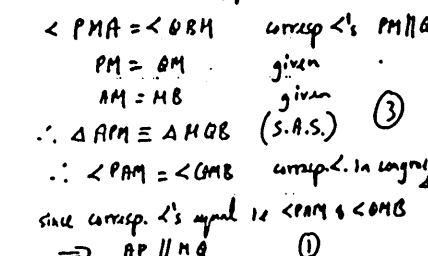 < PMA = < QBM corresp <'s PM || Q
PM = QM given
AM = MB given
∴ △ APM ≡ △ MQB (S.A.S.) ③
∴ < PAM = < QMB corresp. <. in congru
since corresp. <'s equal ie < PAM & < QMB
⇒ AP || MQ ①